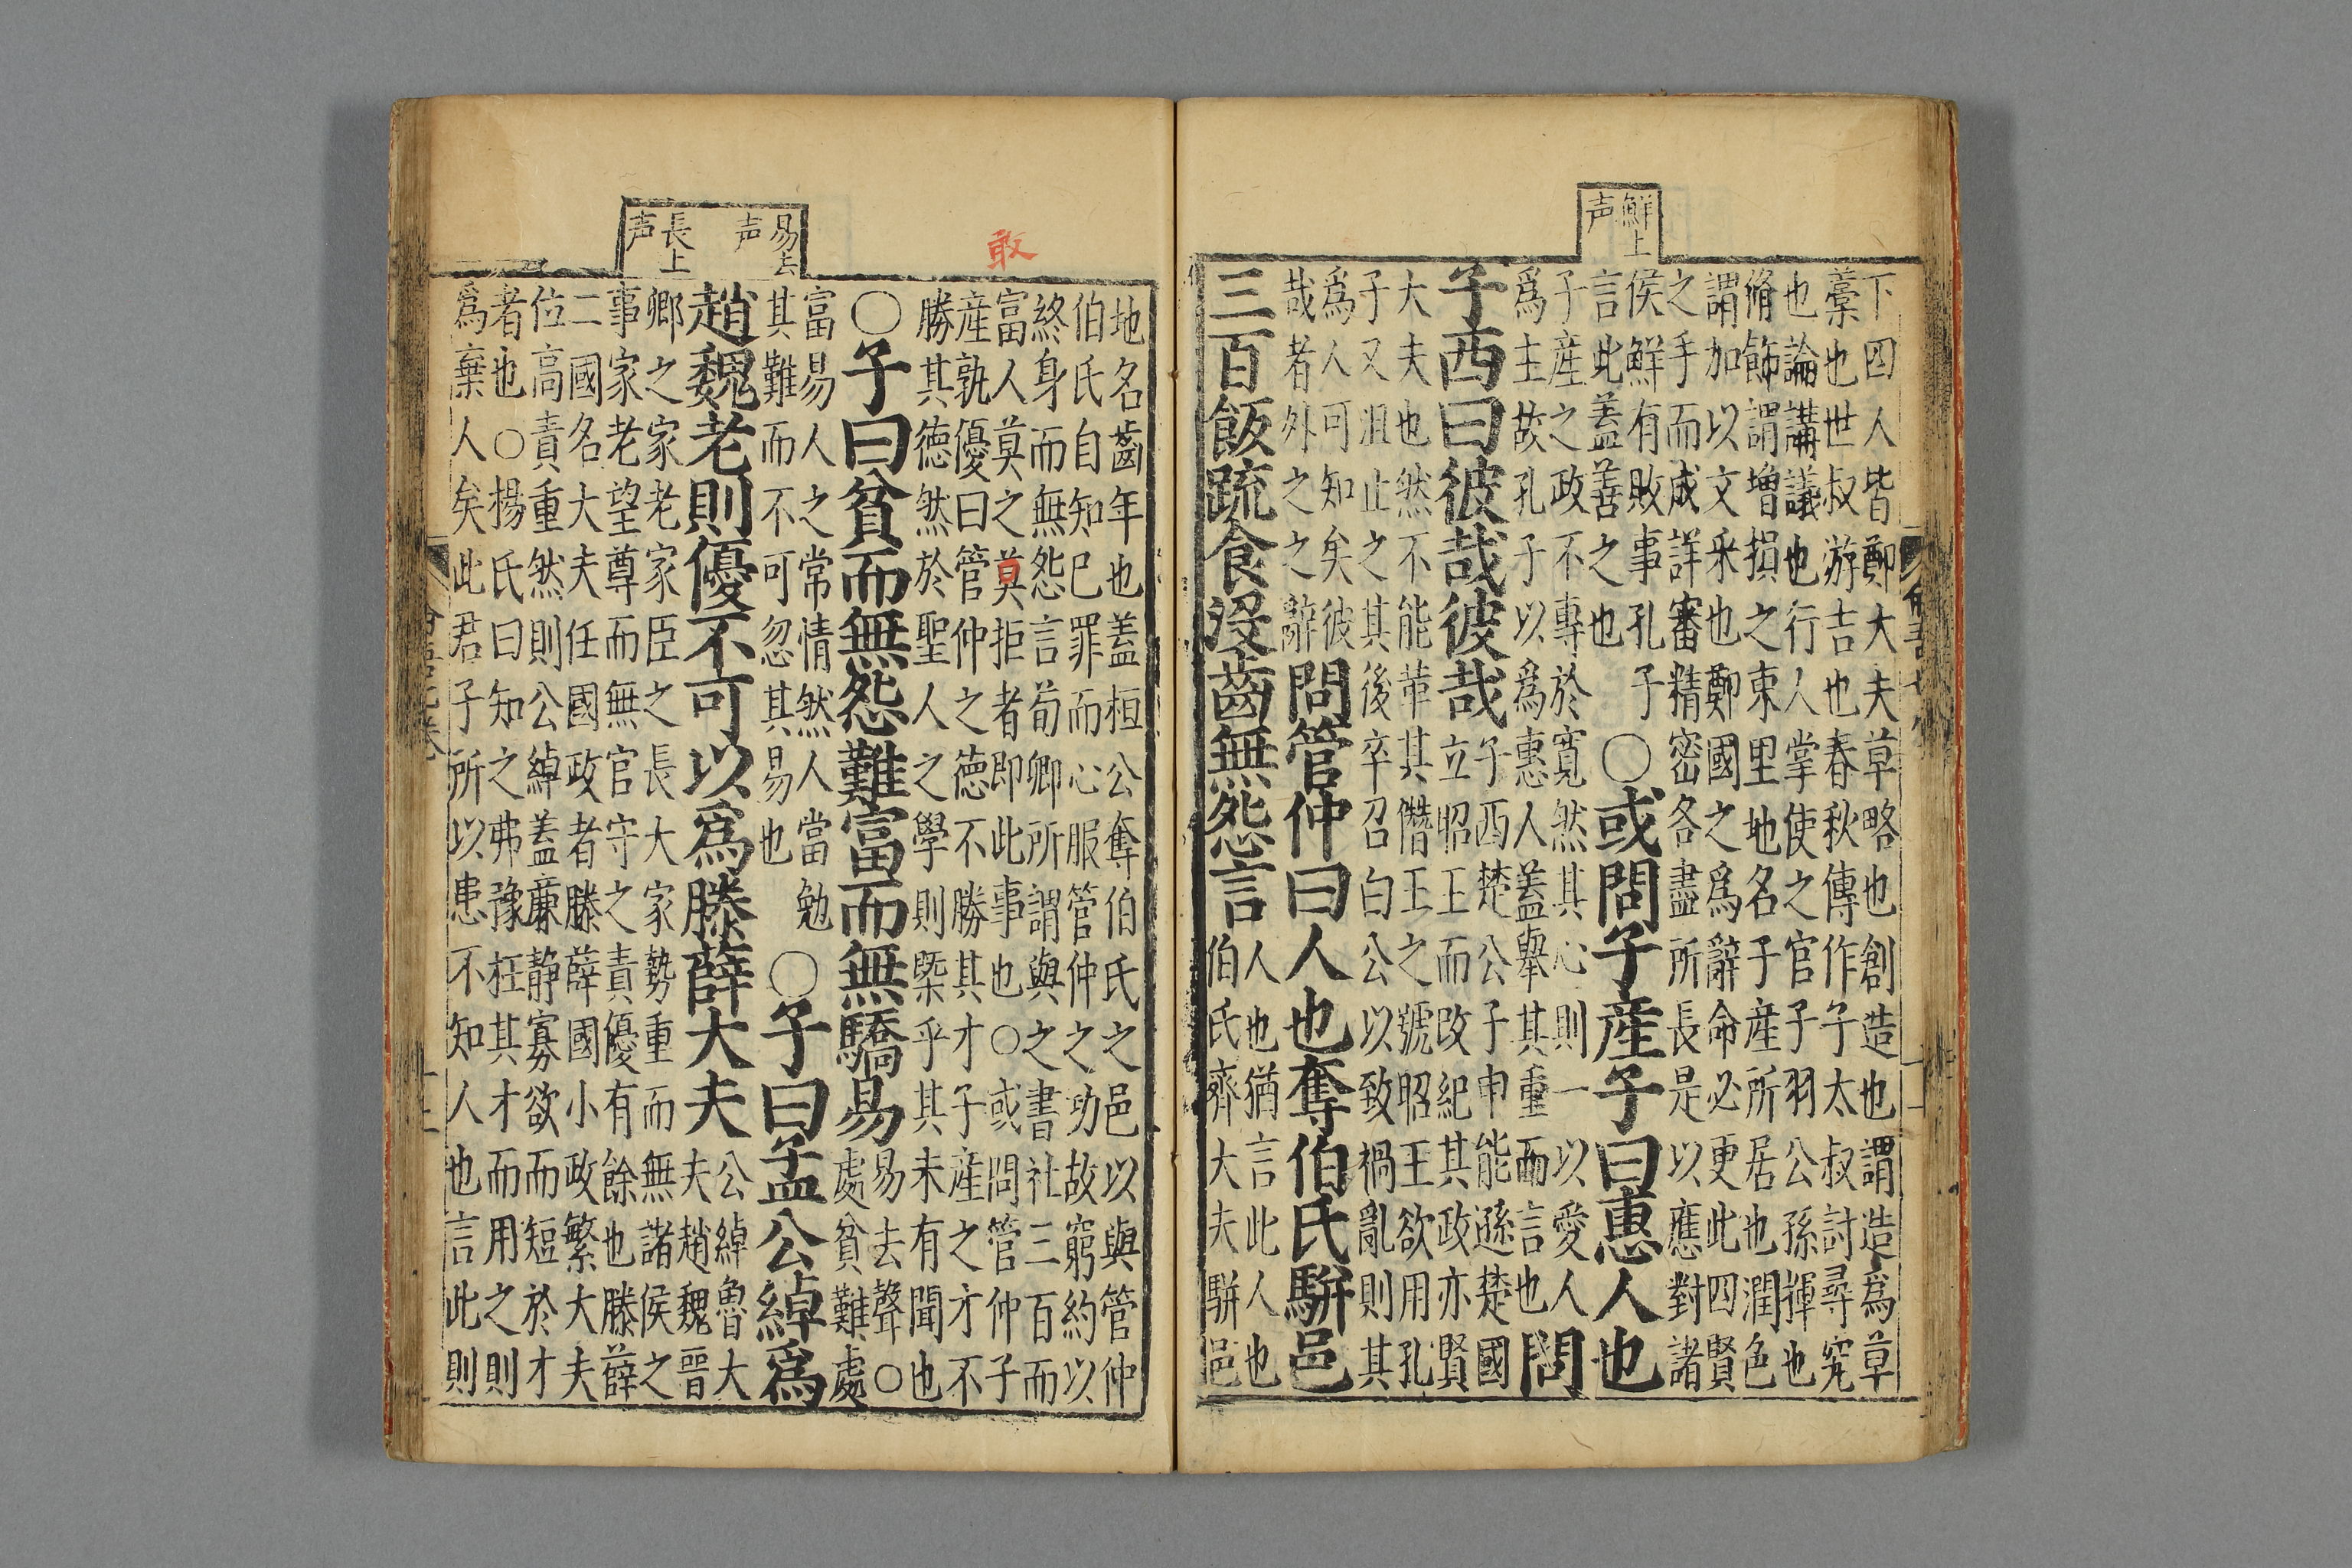 鮮上
声
下四人皆鄭大夫草略也創造也謂造爲草
藁也世叔游吉也春秋傳作子太叔討尋究
也論講議也行人掌使之官子羽公孫揮也
脩飾謂増損之東里地名子産所居也潤色
謂加以文釆也鄭國之爲辭命必更此四賢
之手而成詳審精密各盡所長是以應對諸
侯鮮有敗事孔子
言此蓋善之也
〇或問子産子曰惠人也
子産之政不專於寛然其心則一以愛人
爲主故孔子以爲惠人蓋舉其重而言也
問
子西曰彼哉彼哉
子西楚公子申能遜楚國
立昭王而改紀其政亦賢
大夫也然不能革其僭王之號昭王欲用孔
子又沮止之其後卒召白公以致禍亂則其
爲人可知矣彼
哉者外之之辭
問管仲曰人也奪伯氏駢邑
三百飯疏食没齒無怨言
人也猶言此人也
伯氏齊大夫駢邑
敢
易去
声
長上
声
地名齒年也蓋桓公奪伯氏之邑以與管仲
伯氏自知已罪而心服管仲之功故窮約以
終身而無怨言荀卿所謂與之書社三百而
富人莫之莫拒者即此事也〇或問管仲子
産孰優曰管仲之德不勝其才子産之才不
勝其德然於聖人之學則槩乎其未有聞也
〇子曰貧而無怨難富而無驕易
易去聲〇
處貧難處
富易人之常情然人當勉
其難而不可忽其易也
〇子曰孟公綽爲
趙魏老則優不可以爲滕薛大夫
公綽魯大
夫趙魏晉
卿之家家老家臣之長大家勢重而無諸侯之
事家老望尊而無官守之責優有餘也滕薛
二國名大夫任國政者滕薛國小政繁大夫
位高責重然則公綽蓋廉静寡欲而短於才
者也〇揚氏曰知之弗豫枉其才而用之則
爲棄人矣此君子所以患不知人也言此則